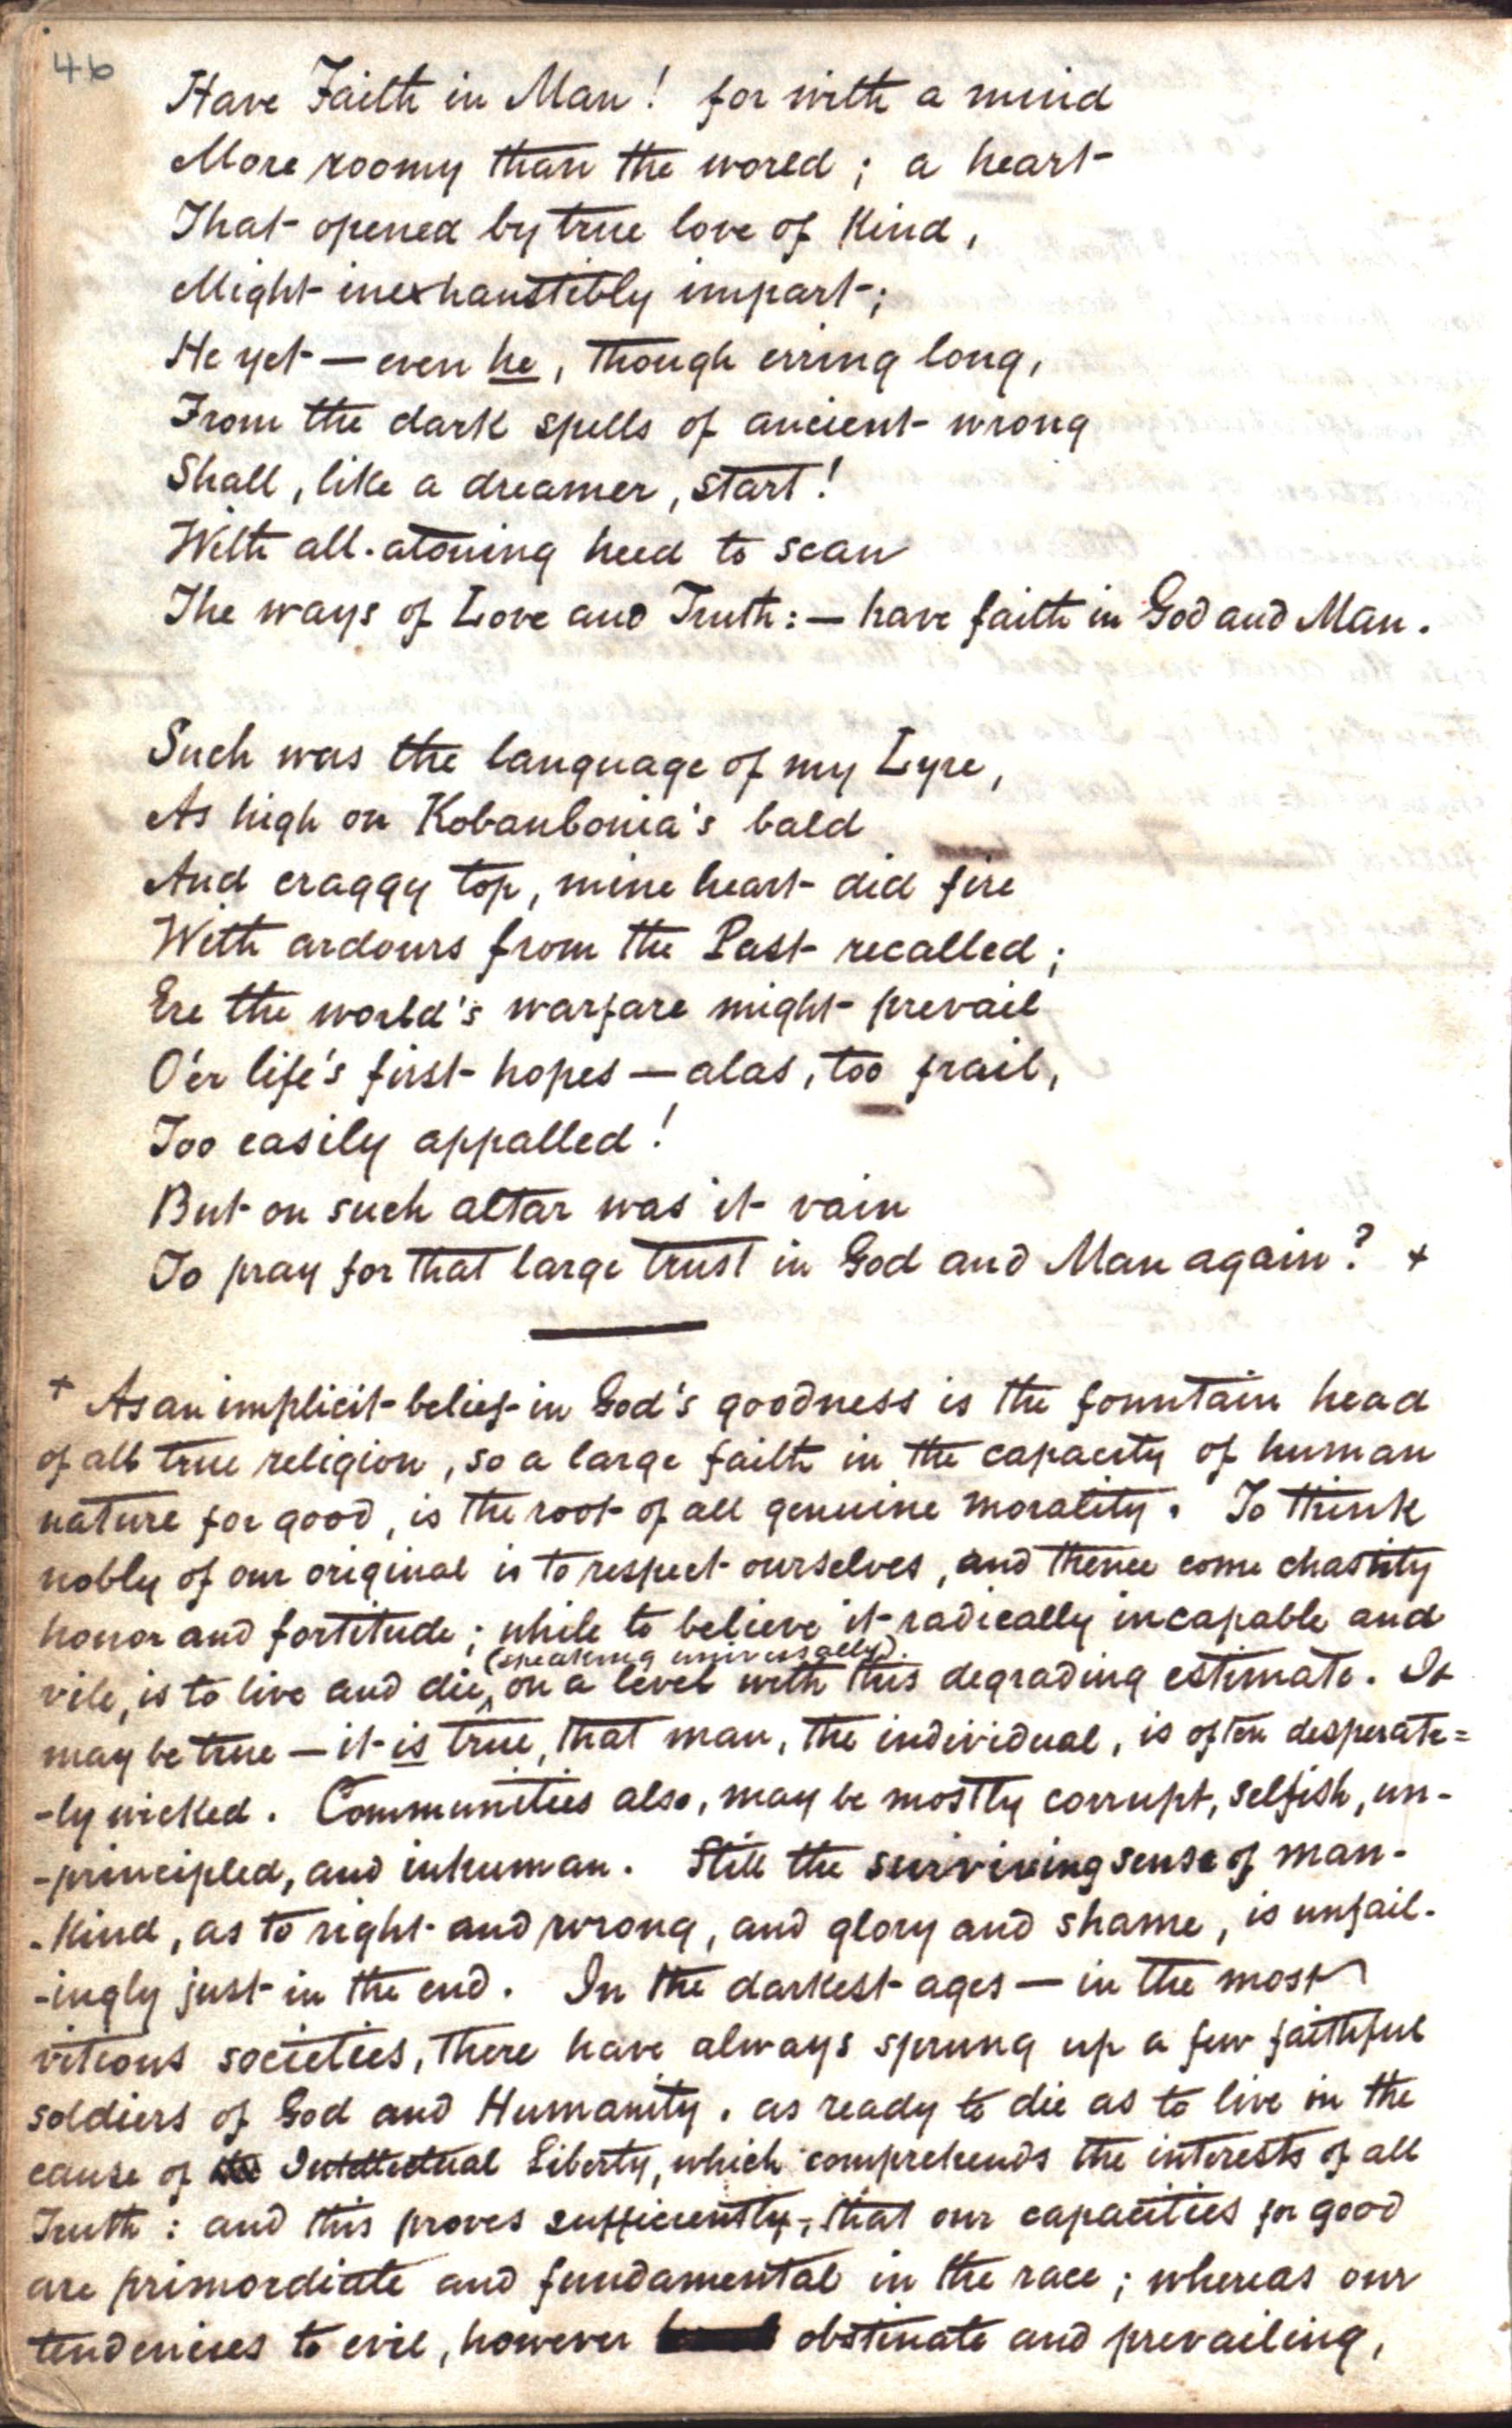 46
Have Faith in Man! for with a mind
More roomy than the world; a heart
That opened by true love of Kind,
Might inexhaustibly impart;
He yet — even he, though erring long,
From the dark spells of ancient wrong
Shall, like a dreamer, start!
With all-atoning heed to scan
The ways of Love and Truth: — have faith in God and Man.
Such was the language of my Lyre,
As high on Kobanbonia's bald
And craggy top, mine heart did fire
With ardours from the Past recalled;
Ere the world's warfare might prevail
O'er life's first hopes — alas, too frail,
Too easily appalled!
But on such altar was it vain
To pray for that large trust in God and Man again? +
+ As an implicit belief in God's goodness is the fountain head
of all true religion, so a large faith in the capacity of human
nature for good, is the root of all genuine morality. To think
nobly of our original is to respect ourselves, and thence come chastity
honor and fortitude; while to believe it radically incapable and
(speaking universally)
vile, is to live and die, on a level with this degrading estimate. It
may be true — it is true, that man, the individual, is often desperate=
-ly wicked. Communities also, may be mostly corrupt, selfish, un-
-principled, and inhuman. Still the surviving sense of man-
-kind, as to right and wrong, and glory and shame, is unfail-
-ingly just in the end. In the darkest ages — in the most
vitious societies, there have always sprung up a few faithful
soldiers of God and Humanity, as ready to die as to live in the
cause of Intellectual Liberty, which comprehends the interests of all
Truth: and this proves sufficiently, that our capacities for good
are primordiate and fundamental in the race; whereas our
tendencies to evil, however obstinate and prevailing,